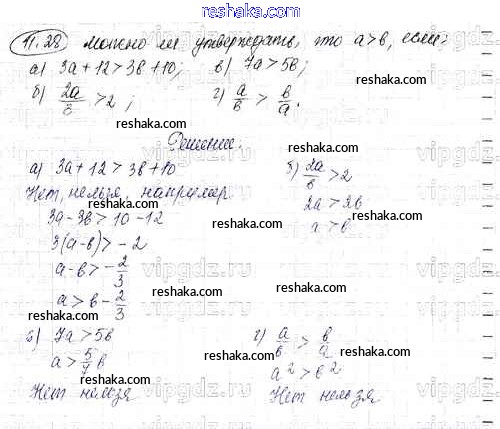 www.reshaka.com
11.28 можно ли утверждать, что a>b, если:
а) 3a + 12 > 3b + 10; в) 7a > 5b;
б) 2a/b > 2; г) a/b > b/a.
reshaka.com reshaka.com
Решение:
reshaka.com
а) 3a + 12 > 3b + 10 б) 2a/b > 2
Нет, нельзя, например 2a > 2b
reshaka.com reshaka.com
3a - 3b > 10 - 12 a > b
3(a-b) > -2 reshaka.com
reshaka.com
a - b > -2/3
reshaka.com
a > b - 2/3
reshaka.com
в) 7a > 5b г) a/b > b/a
reshaka.com
a > 5/7 b a² > b²
reshaka.com
Нет нельзя Нет нельзя
reshaka.com reshaka.com
vipgdz.ru vipgdz.ru vipgdz.ru